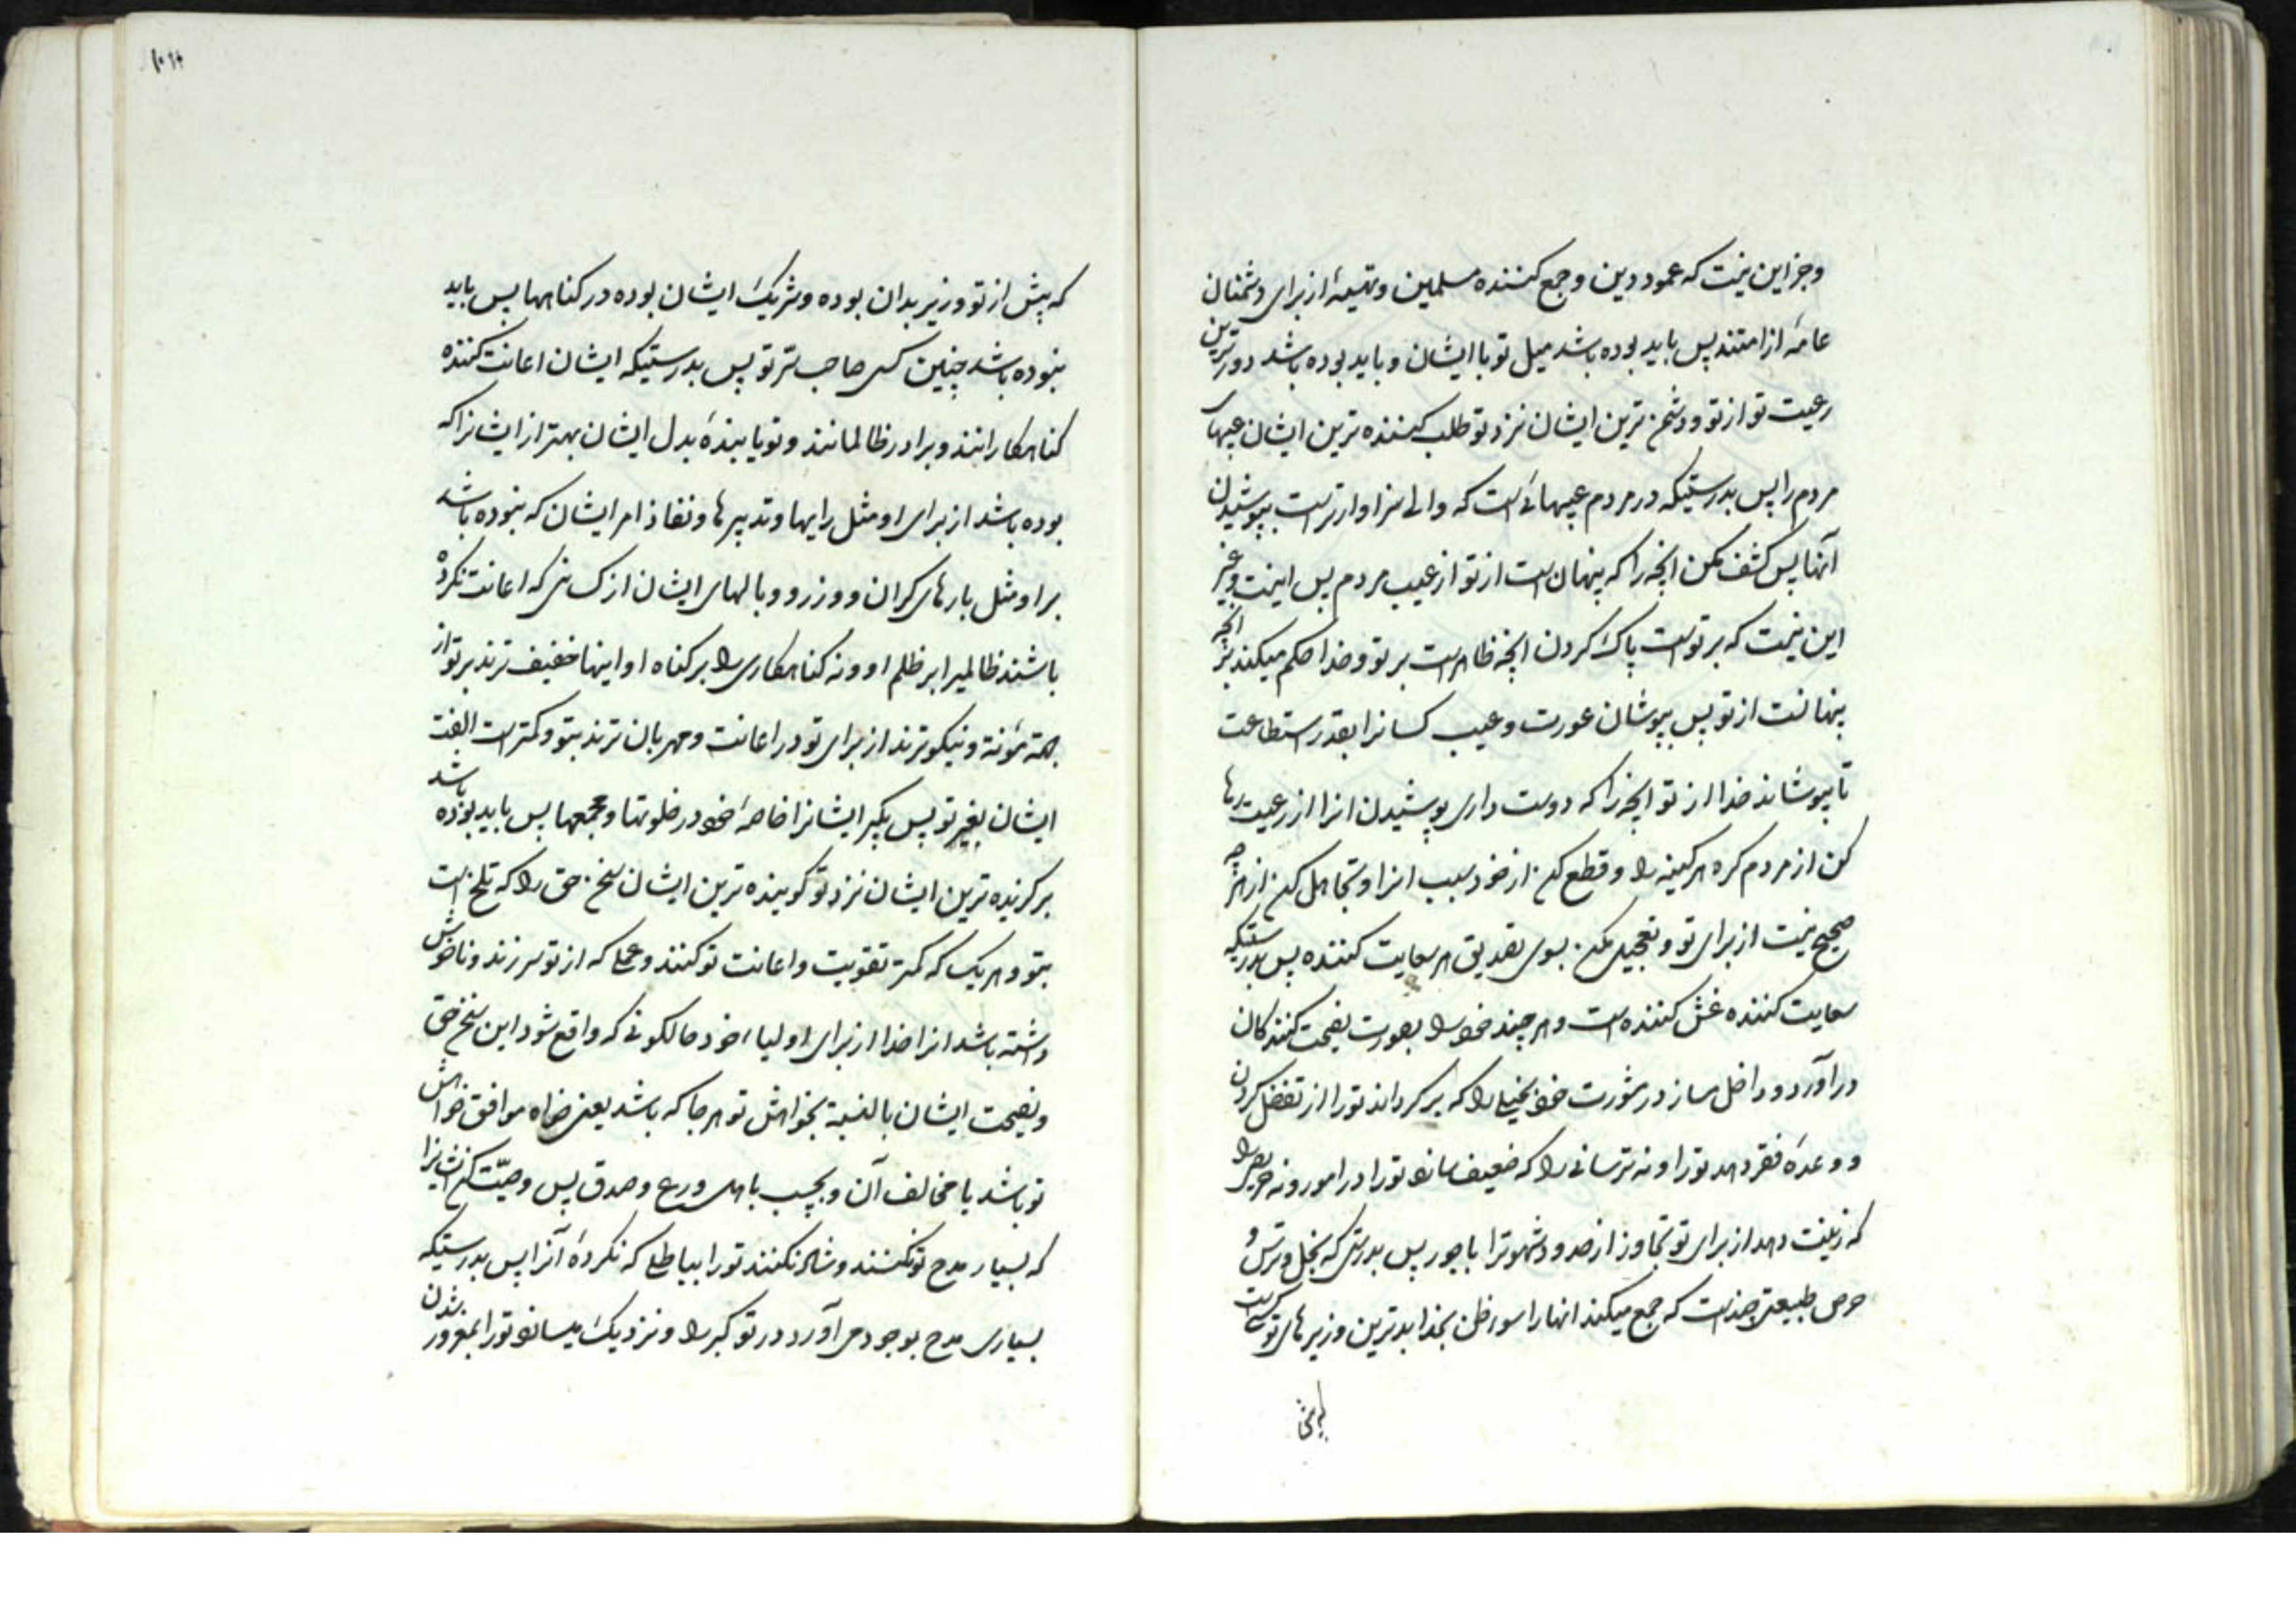 وجز این نیست که عمود دین وجمع کننده مسلمین وتهیهٔ از برای دشمنان
عامهٔ از امتند پس باید بوده باشد میل تو با ایشان و باید بوده باشد دورترین
رعیت تو از تو ودشمن ترین ایشان نزد تو طلب کننده ترین ایشان عیبهای
مردم را پس بدرستیکه در مردم عیبهائی است که والی سزاوارتر است بپوشیدن
آنها پس کشف مکن انچه را که پنهان است از تو از عیب مردم پس اینست وغیر
این نیست که بر تو است پاک کردن انچه ظاهر است بر تو وخدا حکم میکند بر انچه
پنهانست از تو پس بپوشان عورت وعیب کسانرا بقدر استطاعت
تا بپوشاند خدا از تو انچه را که دوست داری پوشیدن انرا از رعیت رها
کن از مردم کره هر کینه را وقطع کن از خود سبب انرا وتجاهل کن از هرچه
صحیح نیست از برای تو وتعجیل مکن بسوی تصدیق هر سعایت کننده پس بدرستیکه
سعایت کننده غش کننده است وهر چند خود را بصورت نصیحت کنندکان
در آورد وداخل مساز در مشورت خود بخیلی را که بر کرداند تورا از تفضل کردن
و وعدهٔ فقر دهد تورا ونه ترسانی را که ضعیف سازد تورا در امور ونه حریصی را
که زینت دهد از برای تو تجاوز از حد ودشهوترا با جور پس بدرستی که بخل وترس و
حرص طبیعتی چند است که جمع میکند انها را سوء ظن بخدا بدترین وزیرهای تو کسی است
که پیش از تو وزیر بدان بوده وشریک ایشان بوده در کناهها پس باید
نبوده باشد چنین کسی صاحب سرّ تو پس بدرستیکه ایشان اعانت کننده
کناهکارانند وبرادر ظالمانند وتو یابندهٔ بدل ایشان بهتر از ایشانرا که
بوده باشد از برای او مثل رایها وتدبیرها ونفاذ امر ایشان که نبوده باشد
بر او مثل بارهای کران ووزر ووبالهای ایشان از کسانی که اعانت نکرده
باشند ظالمیرا بر ظلم او ونه کناهکاری را بر کناه او اینها خفیف ترند بر تو از
جهة مؤنة ونیکوترند از برای تو در اعانت ومهربان ترند بتو وکمتر است الفت
ایشان بغیر تو پس بکیر ایشانرا خاصهٔ خود در خلوتها ومجمعها پس باید بوده باشد
برکزیده ترین ایشان نزد تو کوینده ترین ایشان سخن حق را که تلخ است
بتو وهر یک که کمتر تقویت واعانت تو کنند وعملی که از تو سر زند وناخوش
داشته باشد انرا خدا از برای اولیاء خود حالکونی که واقع شود این سخن حق
ونصیحت ایشان بالنسبة بخواهش تو هر جا که باشد یعنی خواه موافق خواهش
تو باشد یا مخالف آن وبچسب باهل ورع وصدق پس وصیّت کن ایشانرا
که بسیار مدح تو نکنند وشاد نکنند تورا بباطلی که نکردهٔ آنرا پس بدرستیکه
بسیاری مدح بوجود می آورد در تو کبر را ونزدیک میسازد تورا بمغرور شدن